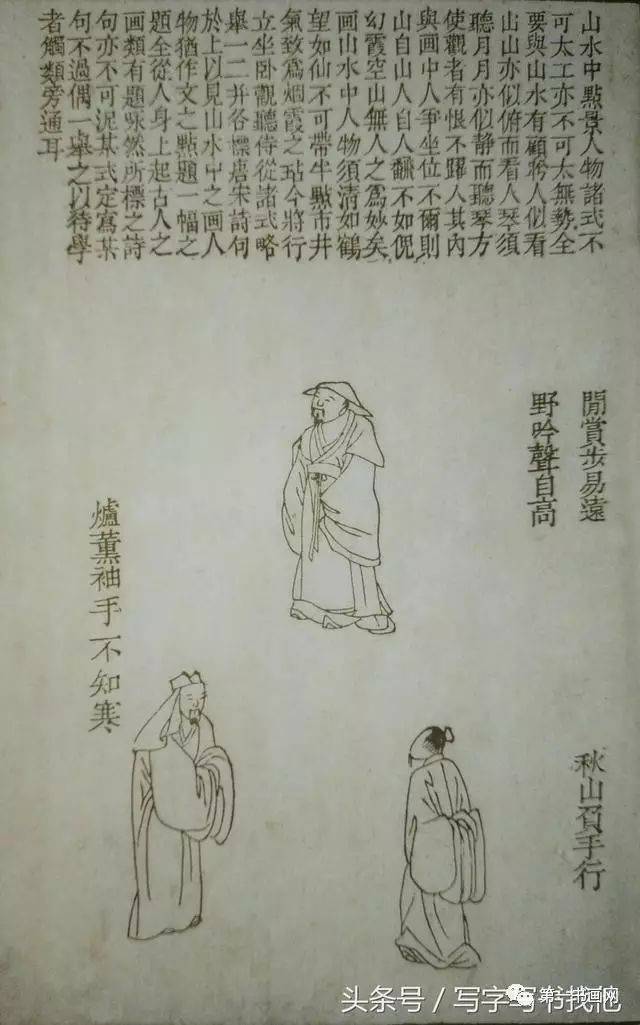 山水中點景人物諸式不
可太工亦不可太無勢全
要與山水有顧盼人似看
山山亦似俯而看人琴須
聽月月亦似静而聽琴方
使觀者有恨不躍入其內
與画中人爭坐位不爾則
山自山人自人飜不如倪
幻霞空山無人之爲妙矣
画山水中人物須清如鶴
望如仙不可帶半點市井
氣致爲烟霞之玷今將行
立坐卧觀聽侍從諸式略
舉一二并各標唐宋詩句
於上以見山水中之画人
物猶作文之點題一幅之
題全從人身上起古人之
画類有題咏然所標之詩
句亦不可泥某式定寫某
句不過偶一舉之以待學
者觸類旁通耳
閒賞步易遠
野吟聲自高
爐薰袖手不知寒
秋山負手行
头条号 / 写字写书找他
书画网